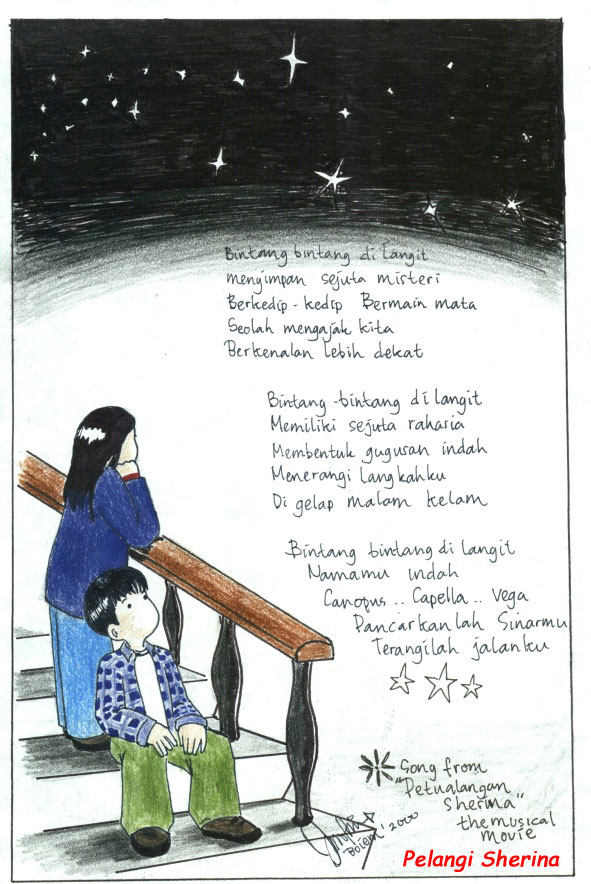 Bintang bintang di langit
menyimpan sejuta misteri
Berkedip-kedip Bermain mata
Seolah mengajak kita
Berkenalan lebih dekat
Bintang-bintang di langit
Memiliki sejuta raharia
Membentuk gugusan indah
Menerangi langkahku
Di gelap malam kelam
Bintang bintang di langit
Namamu indah
Canopus .. Capella .. Vega
Pancarkanlah Sinarmu
Terangilah jalanku
Song from
"Petualangan
Sherina"
the musical
movie
'2000
Pelangi Sherina